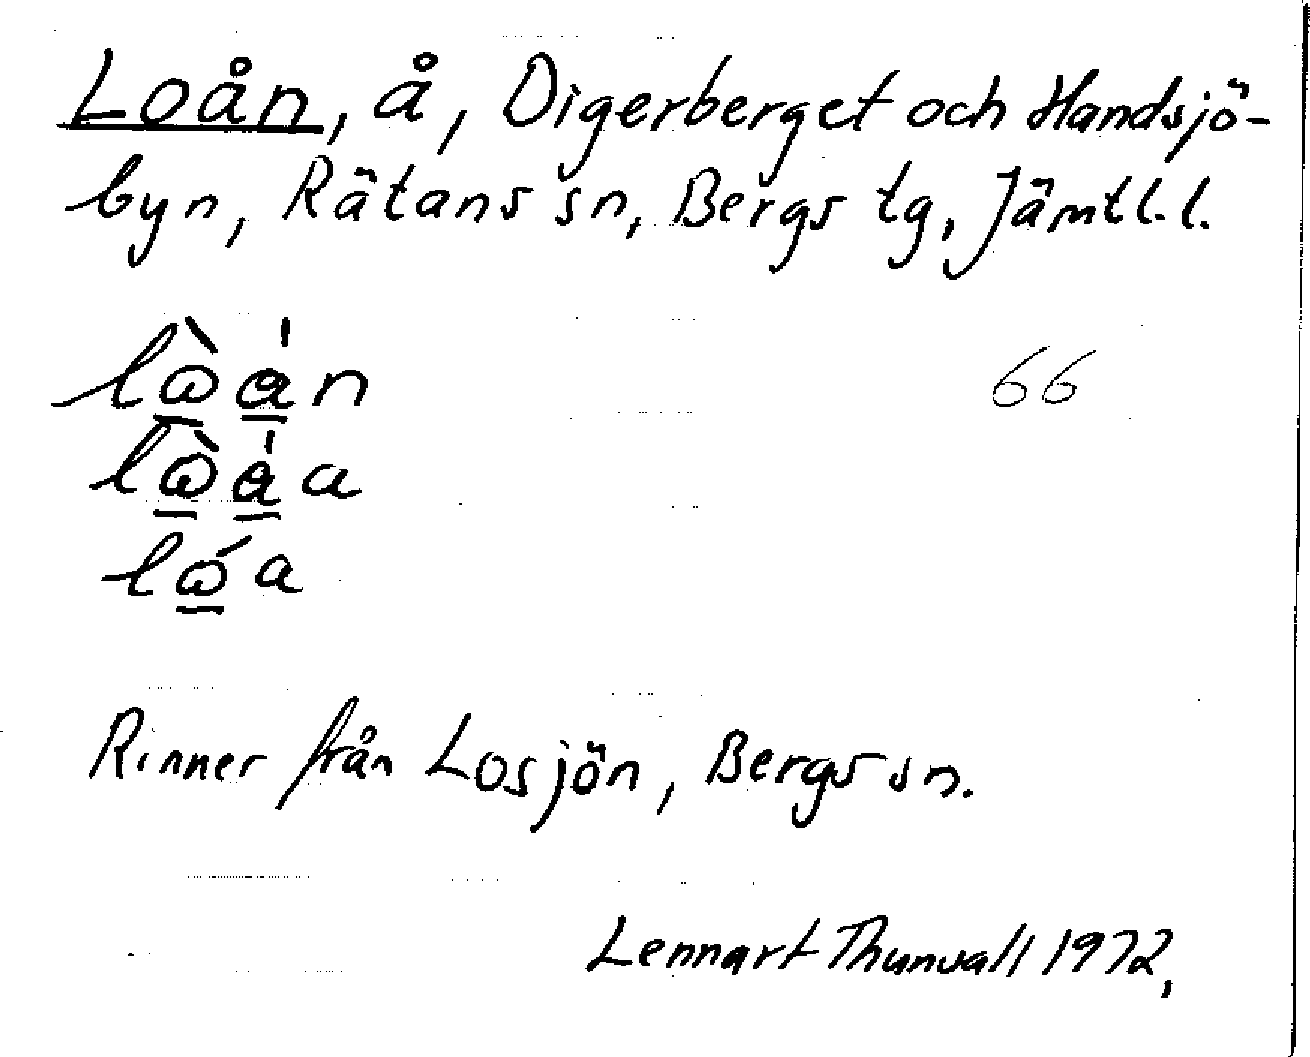 Loån, å, Digerberget och Handsjö-
byn, Rätans sn, Bergs tg, Jämtl. l.
66
Rinner från Losjön, Bergs sn.
Lennart Thunvall 1972,